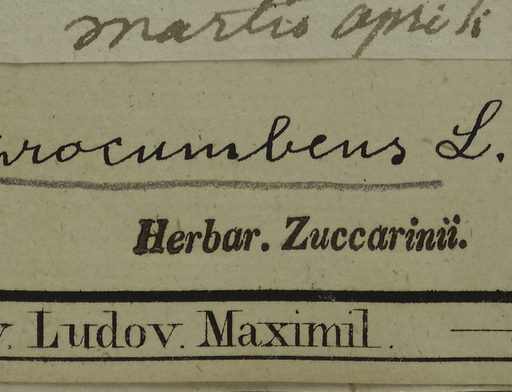 martio aprili
procumbens L.
Herbar. Zuccarinii.
v. Ludov. Maximil.